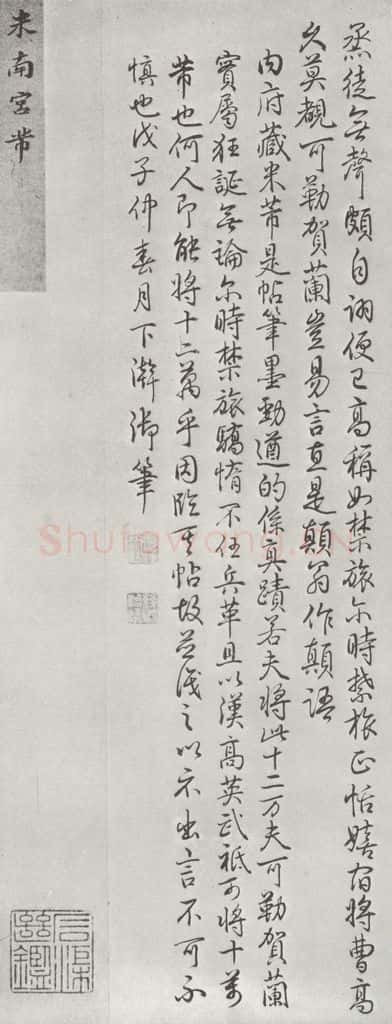 烝徒無聲頗自詡便已高稱如禁旅尓時禁旅正恬嬉宿將曹高
久莫覩可勒賀蘭豈易言直是顛翁作顛語
内府藏米芾是帖筆墨勁遒的係真蹟若夫將此十二万夫可勒賀蘭
實屬狂誕無論尓時禁旅驕惰不任兵革且以漢高英武祗可將十萬
芾也何人即能將十二萬乎因臨其帖故並識之以示出言不可不
慎也戊子仲春月下澣御筆
米南宮芾
Shufawang.cn